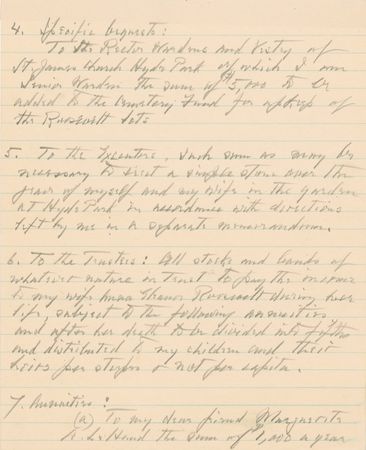 4. Specific bequests:
To the Rector Wardens and Vestry of
St. James Church Hyde Park of which I am
Senior Warden the sum of $5,000 to be
added to the Cemetery Fund for upkeep of
the Roosevelt lots.
5. To the Executors, Such sum as may be
necessary to erect a simple stone over the
grave of myself and my wife in the garden
at Hyde Park in accordance with directions
left by me in a separate memorandum.
6. To the Trustees: All stocks and bonds of
whatever nature in trust to pay the income
to my wife Anna Eleanor Roosevelt during her
life, subject to the following annuities
and after her death to be divided into fifths
and distributed to my children and their
heirs per stirpes & not per capita.
7. Annuities:
(a) To my dear friend Marguerite
A. Le Hand the sum of $1,000 a year